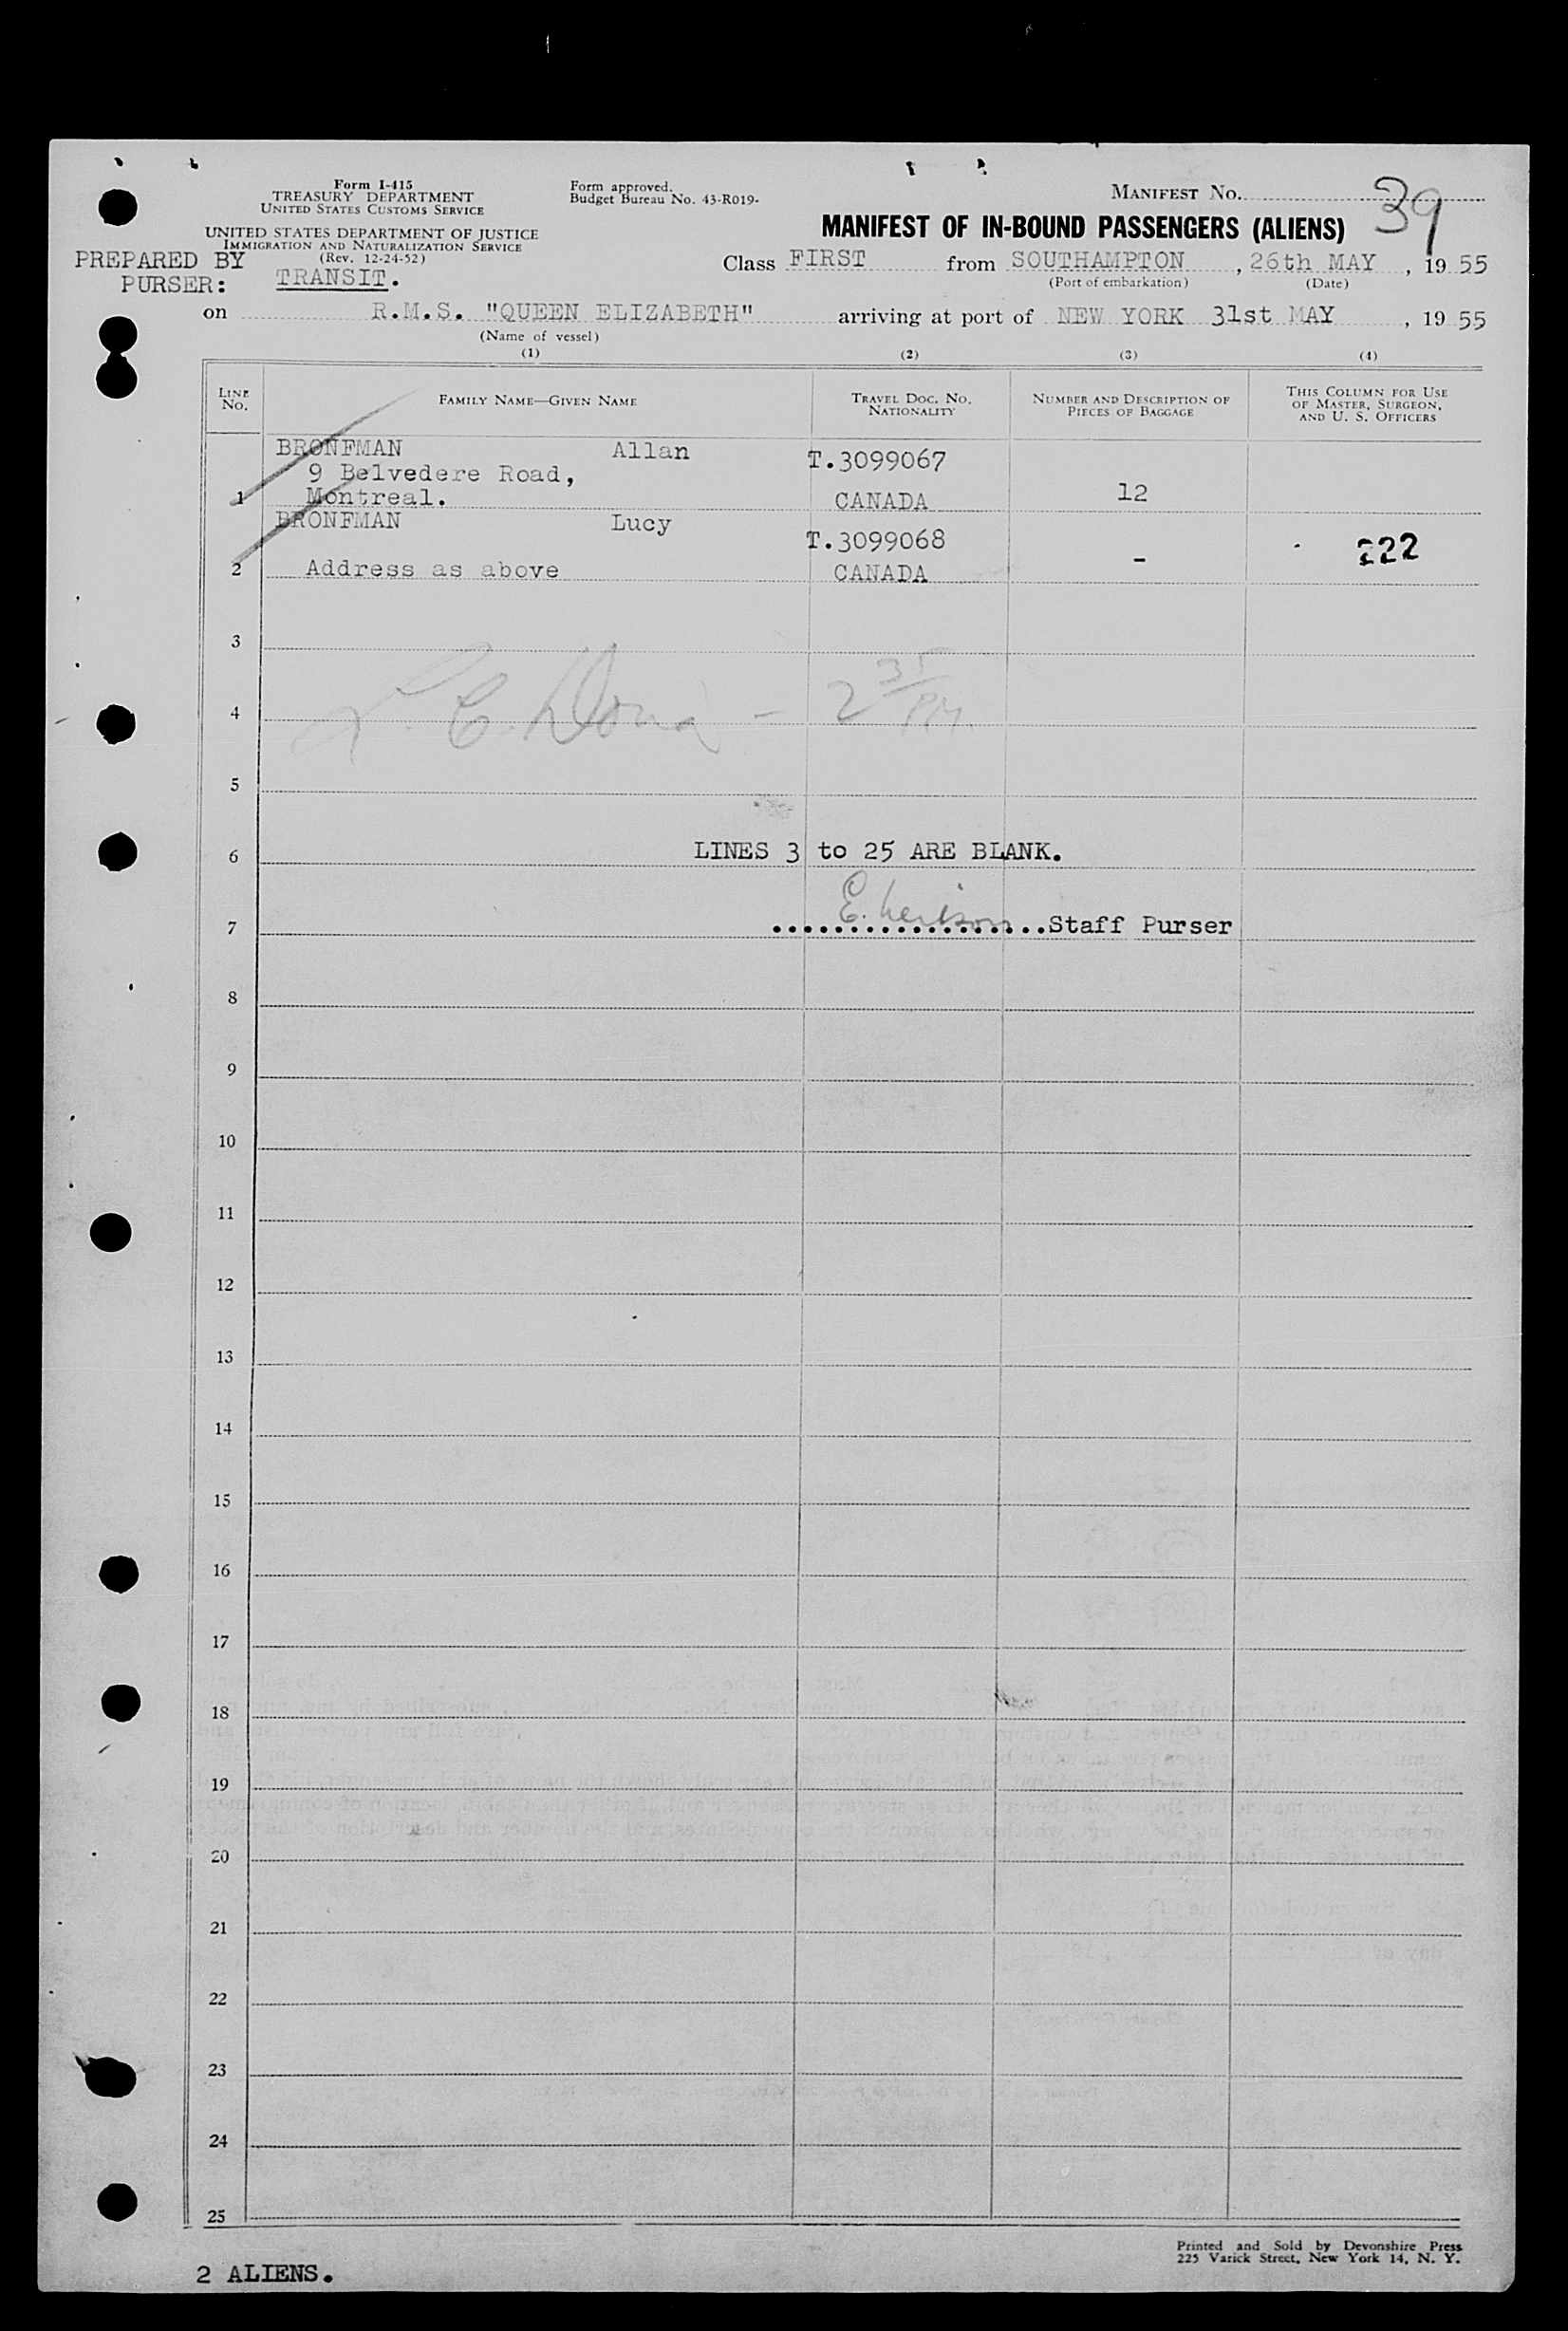 Form I-415
TREASURY DEPARTMENT
UNITED STATES CUSTOMS SERVICE
UNITED STATES DEPARTMENT OF JUSTICE
IMMIGRATION AND NATURALIZATION SERVICE
(Rev. 12-24-52)
Form approved.
Budget Bureau No. 43-R019-
MANIFEST No. 39
MANIFEST OF IN-BOUND PASSENGERS (ALIENS)
PREPARED BY
PURSER: TRANSIT.
Class FIRST from SOUTHAMPTON, 26th MAY, 19 55
(Port of embarkation) (Date)
on R.M.S. "QUEEN ELIZABETH" arriving at port of NEW YORK 31st MAY, 19 55
(Name of vessel)
(1) (2) (3) (4)
LINE No. FAMILY NAME—GIVEN NAME TRAVEL DOC. NO. NATIONALITY NUMBER AND DESCRIPTION OF PIECES OF BAGGAGE THIS COLUMN FOR USE OF MASTER, SURGEON, AND U. S. OFFICERS
BRONFMAN Allan T.3099067
9 Belvedere Road,
1 Montreal. CANADA 12
BRONFMAN Lucy T.3099068
2 Address as above CANADA - 222
3
4 2 35/PM
5
6 LINES 3 to 25 ARE BLANK.
7 ..................Staff Purser
8
9
10
11
12
13
14
15
16
17
18
19
20
21
22
23
24
25
2 ALIENS.
Printed and Sold by Devonshire Press
225 Varick Street, New York 14, N. Y.